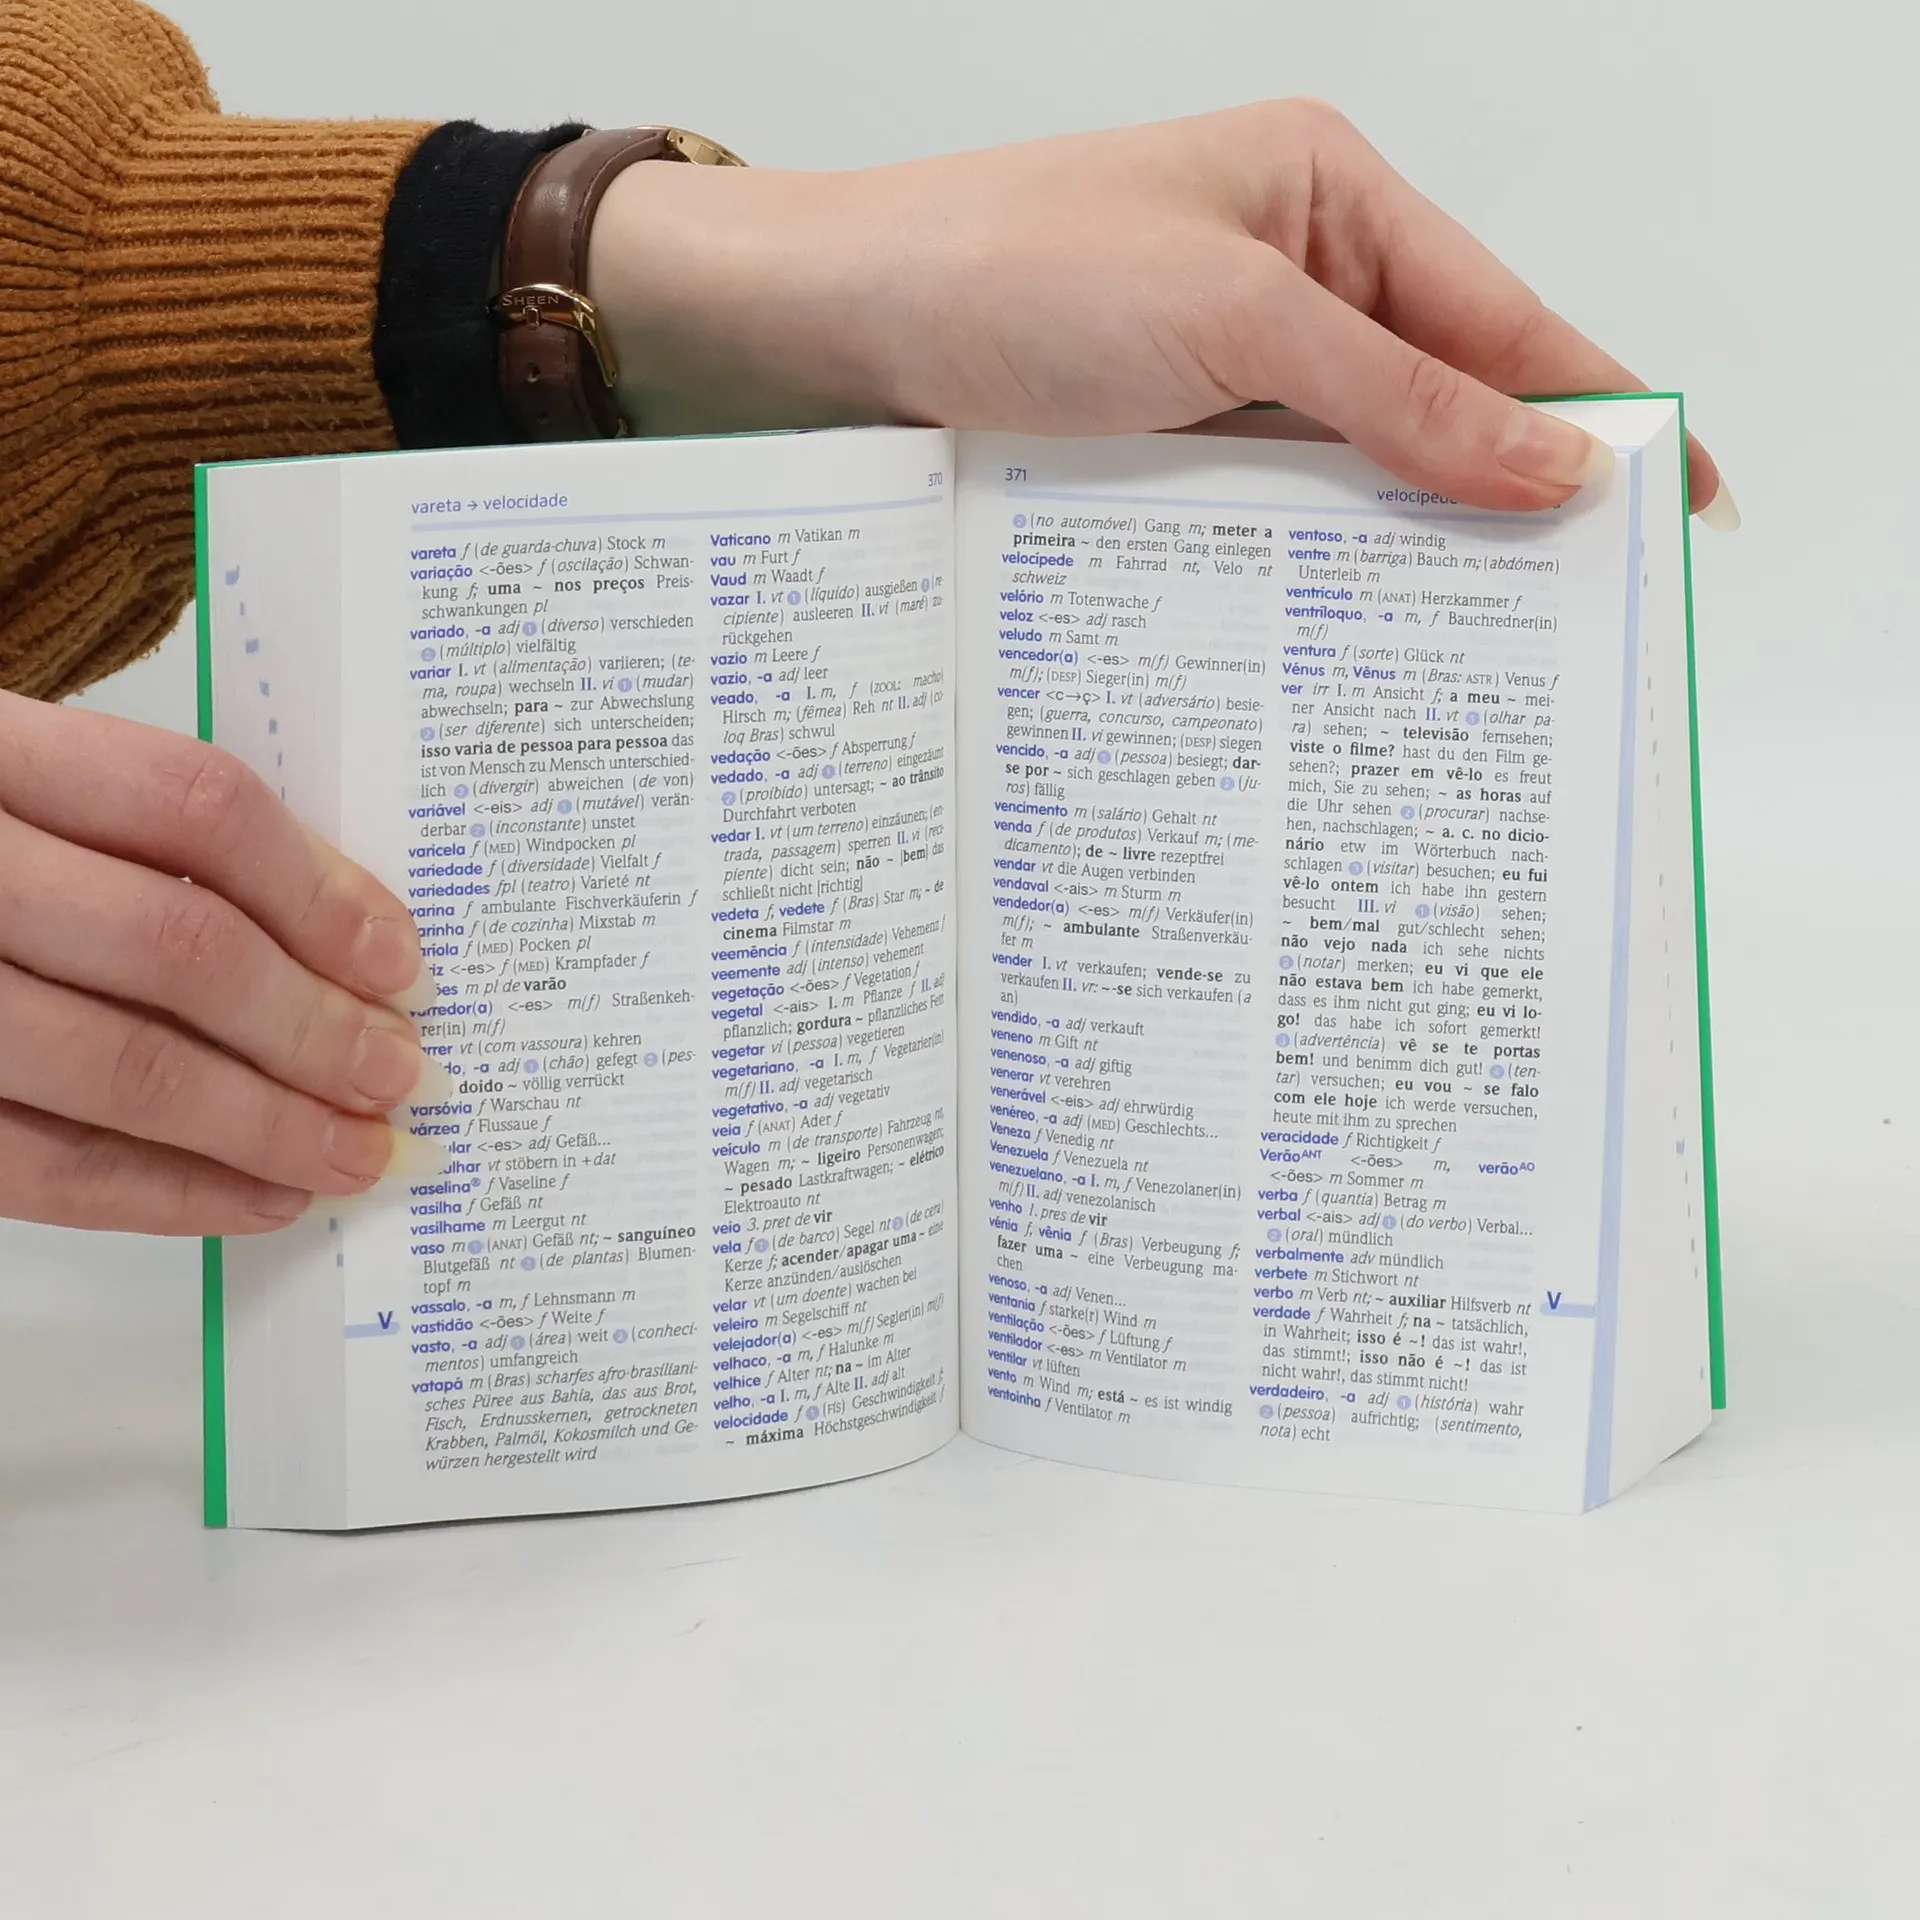 SHEEN
vareta → velocidade
370
vareta f (de guarda-chuva) Stock m
variação <-ões> f (oscilação) Schwan-
kung f; uma ~ nos preços Preis-
schwankungen pl
variado, -a adj 1 (diverso) verschieden
2 (múltiplo) vielfältig
variar I. vt (alimentação) variieren; (te-
ma, roupa) wechseln II. vi 1 (mudar)
abwechseln; para ~ zur Abwechslung
2 (ser diferente) sich unterscheiden;
isso varia de pessoa para pessoa das
ist von Mensch zu Mensch unterschied-
lich 3 (divergir) abweichen (de von)
variável <-eis> adj 1 (mutável) verän-
derbar 2 (inconstante) unstet
varicela f (MED) Windpocken pl
variedade f (diversidade) Vielfalt f
variedades fpl (teatro) Varieté nt
varina f ambulante Fischverkäuferin f
arinha f (de cozinha) Mixstab m
aríola f (MED) Pocken pl
iz <-es> f (MED) Krampfader f
ões m pl de varão
varredor(a) <-es> m(f) Straßenkeh-
rer(in) m(f)
rrer vt (com vassoura) kehren
do, -a adj 1 (chão) gefegt 2 (pes-
doido ~ völlig verrückt
varsóvia f Warschau nt
várzea f Flussaue f
ular <-es> adj Gefäß...
ulhar vt stöbern in +dat
vaselina® f Vaseline f
vasilha f Gefäß nt
vasilhame m Leergut nt
vaso m 1 (ANAT) Gefäß nt; ~ sanguíneo
Blutgefäß nt 2 (de plantas) Blumen-
topf m
vassalo, -a m, f Lehnsmann m
vastidão <-ões> f Weite f
vasto, -a adj 1 (área) weit 2 (conheci-
mentos) umfangreich
vatapá m (Bras) scharfes afro-brasiliani-
sches Püree aus Bahia, das aus Brot,
Fisch, Erdnusskernen, getrockneten
Krabben, Palmöl, Kokosmilch und Ge-
würzen hergestellt wird
V
Vaticano m Vatikan m
vau m Furt f
Vaud m Waadt f
vazar I. vt 1 (líquido) ausgießen 2 (re-
cipiente) ausleeren II. vi (maré) zu-
rückgehen
vazio m Leere f
vazio, -a adj leer
veado, -a I. m, f (ZOOL: macho)
Hirsch m; (fêmea) Reh nt II. adj (co-
loq Bras) schwul
vedação <-ões> f Absperrung f
vedado, -a adj 1 (terreno) eingezäunt
2 (proibido) untersagt; ~ ao trânsito
Durchfahrt verboten
vedar I. vt (um terreno) einzäunen; (en-
trada, passagem) sperren II. vi (reci-
piente) dicht sein; não ~ [bem] das
schließt nicht [richtig]
vedeta f, vedete f (Bras) Star m; ~ de
cinema Filmstar m
veemência f (intensidade) Vehemenz f
veemente adj (intenso) vehement
vegetação <-ões> f Vegetation f
vegetal <-ais> I. m Pflanze f II. adj
pflanzlich; gordura ~ pflanzliches Fett
vegetar vi (pessoa) vegetieren
vegetariano, -a I. m, f Vegetarier(in)
m(f) II. adj vegetarisch
vegetativo, -a adj vegetativ
veia f (ANAT) Ader f
veículo m (de transporte) Fahrzeug nt,
Wagen m; ~ ligeiro Personenwagen;
~ pesado Lastkraftwagen; ~ elétrico
Elektroauto nt
veio 3. pret de vir
vela f 1 (de barco) Segel nt 2 (de cera)
Kerze f; acender/apagar uma ~ eine
Kerze anzünden/auslöschen
velar vt (um doente) wachen bei
veleiro m Segelschiff nt
velejador(a) <-es> m(f) Segler(in) m(f)
velhaco, -a m, f Halunke m
velhice f Alter nt; na ~ im Alter
velho, -a I. m, f Alte II. adj alt
velocidade f 1 (FÍS) Geschwindigkeit f;
~ máxima Höchstgeschwindigkeit f
371
velocípede
2 (no automóvel) Gang m; meter a
primeira ~ den ersten Gang einlegen
velocípede m Fahrrad nt, Velo nt
schweiz
velório m Totenwache f
veloz <-es> adj rasch
veludo m Samt m
vencedor(a) <-es> m(f) Gewinner(in)
m(f); (DESP) Sieger(in) m(f)
vencer <c→ç> I. vt (adversário) besie-
gen; (guerra, concurso, campeonato)
gewinnen II. vi gewinnen; (DESP) siegen
vencido, -a adj 1 (pessoa) besiegt; dar-
se por ~ sich geschlagen geben 2 (ju-
ros) fällig
vencimento m (salário) Gehalt nt
venda f (de produtos) Verkauf m; (me-
dicamento); de ~ livre rezeptfrei
vendar vt die Augen verbinden
vendaval <-ais> m Sturm m
vendedor(a) <-es> m(f) Verkäufer(in)
m(f); ~ ambulante Straßenverkäu-
fer m
vender I. vt verkaufen; vende-se zu
verkaufen II. vr: ~-se sich verkaufen (a
an)
vendido, -a adj verkauft
veneno m Gift nt
venenoso, -a adj giftig
venerar vt verehren
venerável <-eis> adj ehrwürdig
venéreo, -a adj (MED) Geschlechts...
Veneza f Venedig nt
Venezuela f Venezuela nt
venezuelano, -a I. m, f Venezolaner(in)
m(f) II. adj venezolanisch
venho 1. pres de vir
vénia f, vênia f (Bras) Verbeugung f;
fazer uma ~ eine Verbeugung ma-
chen
venoso, -a adj Venen...
ventania f starke(r) Wind m
ventilação <-ões> f Lüftung f
ventilador <-es> m Ventilator m
ventilar vt lüften
vento m Wind m; está ~ es ist windig
ventoinha f Ventilator m
ventoso, -a adj windig
ventre m (barriga) Bauch m; (abdómen)
Unterleib m
ventrículo m (ANAT) Herzkammer f
ventríloquo, -a m, f Bauchredner(in)
m(f)
ventura f (sorte) Glück nt
Vénus m, Vênus m (Bras: ASTR) Venus f
ver irr I. m Ansicht f; a meu ~ mei-
ner Ansicht nach II. vt 1 (olhar pa-
ra) sehen; ~ televisão fernsehen;
viste o filme? hast du den Film ge-
sehen?; prazer em vê-lo es freut
mich, Sie zu sehen; ~ as horas auf
die Uhr sehen 2 (procurar) nachse-
hen, nachschlagen; ~ a. c. no dicio-
nário etw im Wörterbuch nach-
schlagen 3 (visitar) besuchen; eu fui
vê-lo ontem ich habe ihn gestern
besucht III. vi 1 (visão) sehen;
~ bem/mal gut/schlecht sehen;
não vejo nada ich sehe nichts
2 (notar) merken; eu vi que ele
não estava bem ich habe gemerkt,
dass es ihm nicht gut ging; eu vi lo-
go! das habe ich sofort gemerkt!
3 (advertência) vê se te portas
bem! und benimm dich gut! 4 (ten-
tar) versuchen; eu vou ~ se falo
com ele hoje ich werde versuchen,
heute mit ihm zu sprechen
veracidade f Richtigkeit f
Verão ANT <-ões> m, verão AO
<-ões> m Sommer m
verba f (quantia) Betrag m
verbal <-ais> adj 1 (do verbo) Verbal...
2 (oral) mündlich
verbalmente adv mündlich
verbete m Stichwort nt
verbo m Verb nt; ~ auxiliar Hilfsverb nt
verdade f Wahrheit f; na ~ tatsächlich,
in Wahrheit; isso é ~! das ist wahr!,
das stimmt!; isso não é ~! das ist
nicht wahr!, das stimmt nicht!
verdadeiro, -a adj 1 (história) wahr
2 (pessoa) aufrichtig; (sentimento,
nota) echt
V